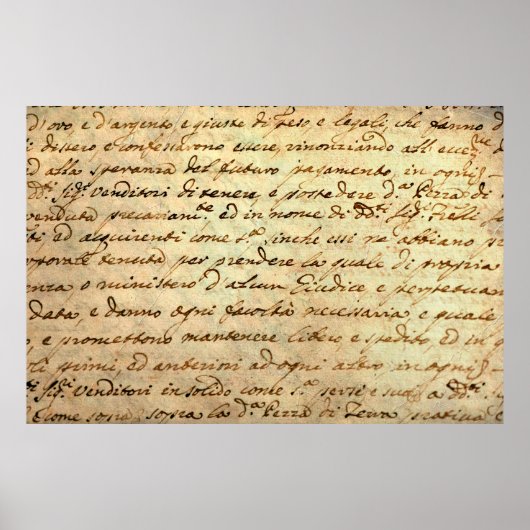 d'oro, e d'argento e giuste di peso e legali, che fanno d
di dissero, e confessarono essere, rinonziando all' ecce
ed alla speranza del futuro pagamento in ogni
dd.ti Sig.ri Venditori di tenere, e possedere d.a Pezza di
venduta precariam.te ed in nome di dd.ti Sig.ri
ed acquirenti come s.a sinche essi ne abbiano pr
corporale tenuta per prendere la quale di propria
o ministero d'alcun Giudice e perpetuam
data, e danno ogni facoltà necessaria e quale
e promettono mantenere libero e spedito, ed in
primi, ed anteriori ad ogni altro in ogni
dd.ti Sig.ri Venditori in solido come s.a
e come sopra sopra la d.a Pezza di Terra